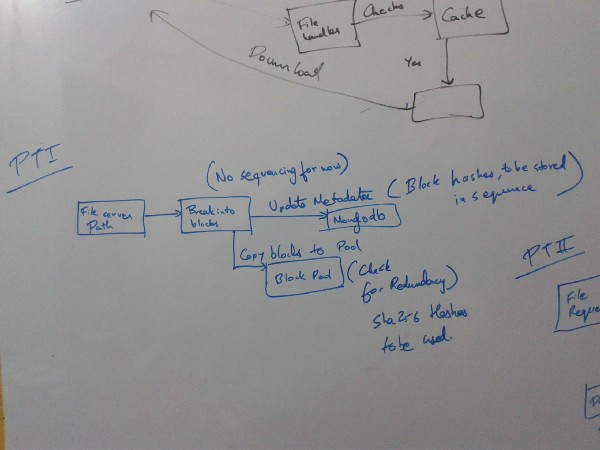 File
handler
Checks
Cache
Yes
Download
PT I
(No sequencing for now)
File server
Path
Break into
blocks
Update Metadata
Mongodb
(Block hashes, to be stored
in sequence)
Copy blocks to Pool
Block Pool
(Check
for Redundancy)
Sha256 Hashes
to be used.
PT II
File
Reque